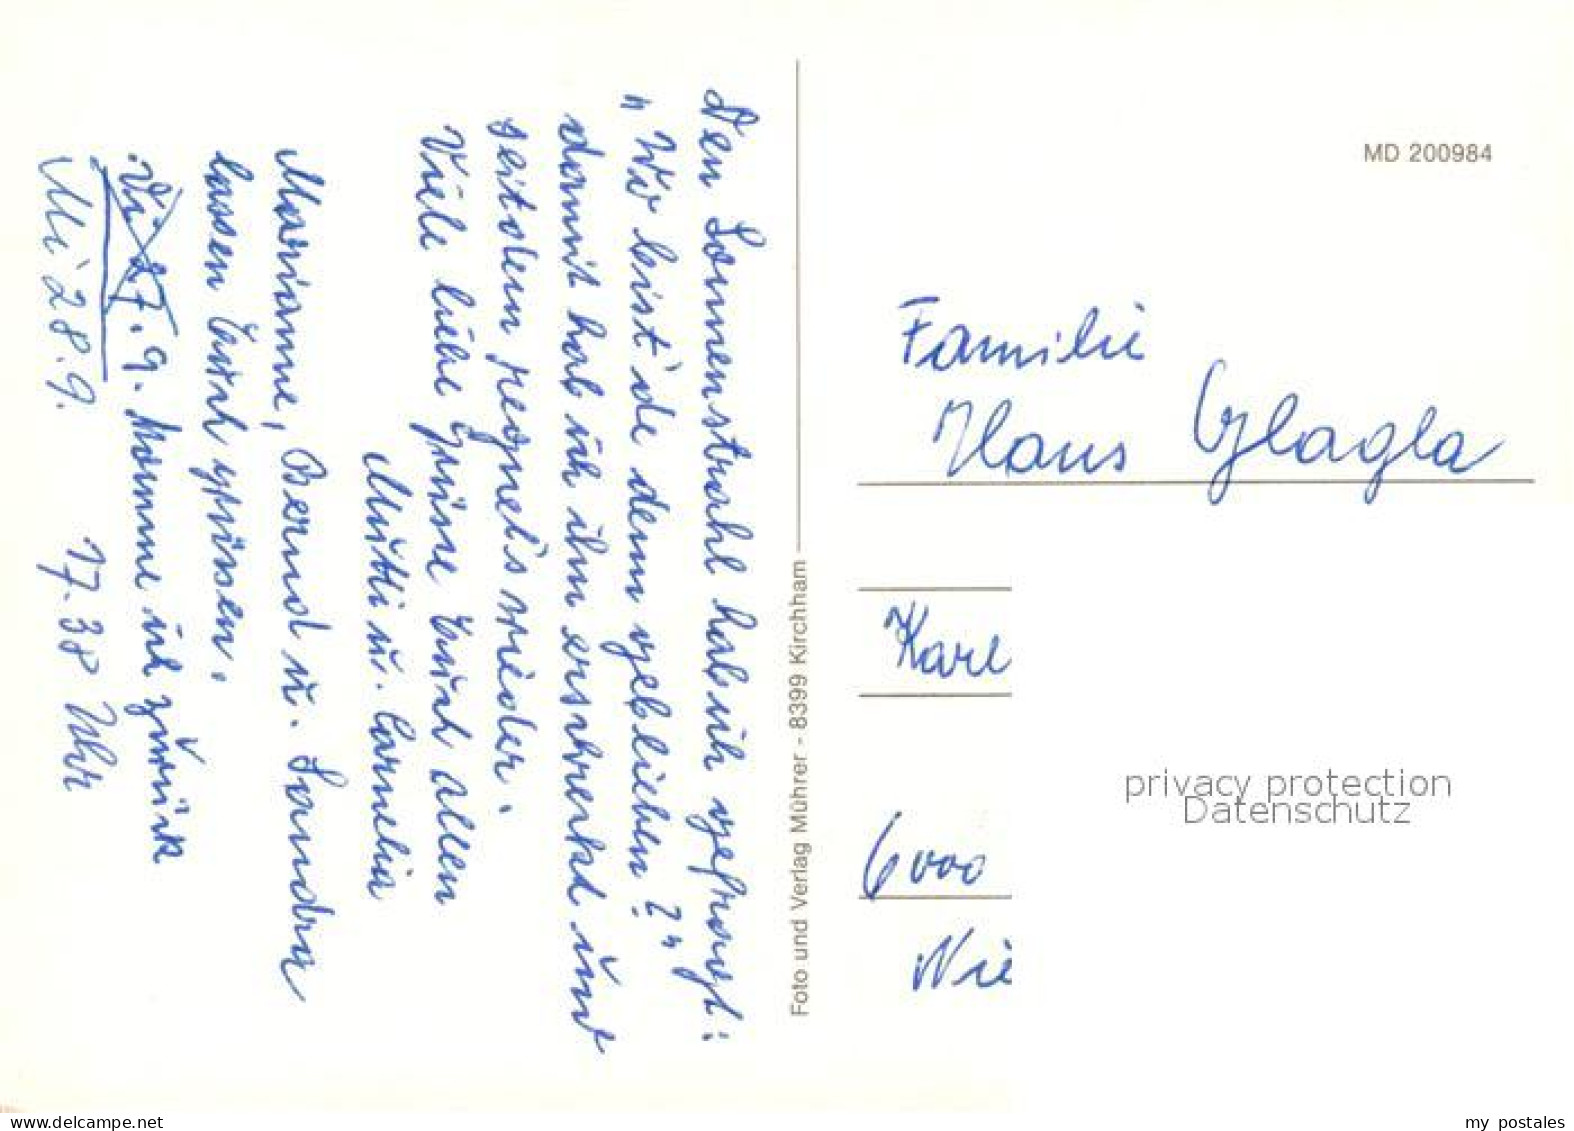 Den Sonnenstrahl hab ich gefragt:
"Wo bist' de denn geblieben?"
damit hab ich ihn erschreckt und
seitdem regnet's wieder.
Viele liebe Grüsse Euch allen
Mutti u. Cornelia
Marianne, Bernd u. Sandra
lassen Euch grüssen.
Di 27. 9. komme ich zurück
Mi 28.9. 17.38 Uhr
Foto und Verlag Mührer - 8399 Kirchham
MD 200984
Familie
Hans Glagla
Karl
6000
Nie
privacy protection
Datenschutz
www.delcampe.net
my_postales